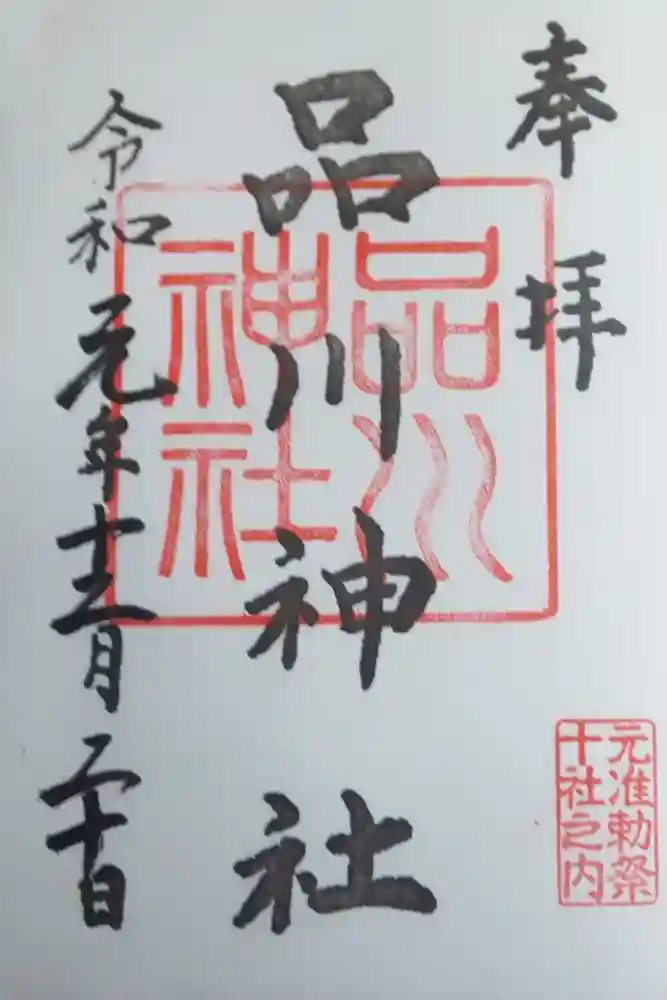 奉拝
元准勅祭
十社之内
品川神社
品川
神社
令和元年十二月二十日